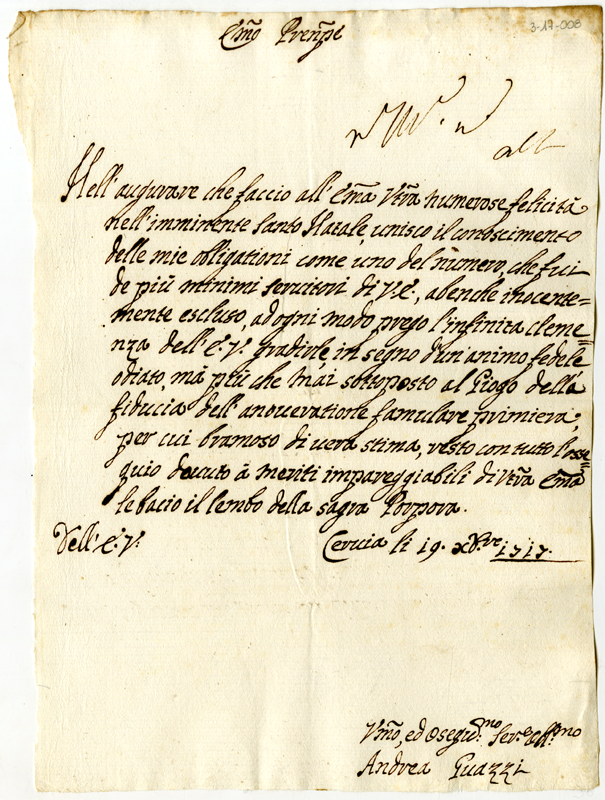 3-17-008
Em̃o Prenp̃e
Nell'augurare che faccio all' Em̃a Vr̃a numerose felicità
nell'imminente Santo Natale, unisco il conoscimento
delle mie obligationi come uno del nùmero, che fui
de più minimi servitori di V.E., abenche inocente=
mente escluso, ad ogni modo prego l'infinita cleme=
nza dell' E. V. gradirle, in segno d'un'animo fedele
odiato, mà più che mai sottoposto al Giogo della
fiducia dell' anoveratione famulare primiera;
per cui bramoso di vera stima, resto con tutto l'osse=
quio dovuto à meriti impareggiabili di Vr̃a Em̃a
le bacio il lembo della sagra Porpora.
Dell' E. V.
Cervia li 19. xb.re 1717.
Vm̃o, ed Osequ.mo Ser.e
Andrea Guazzi